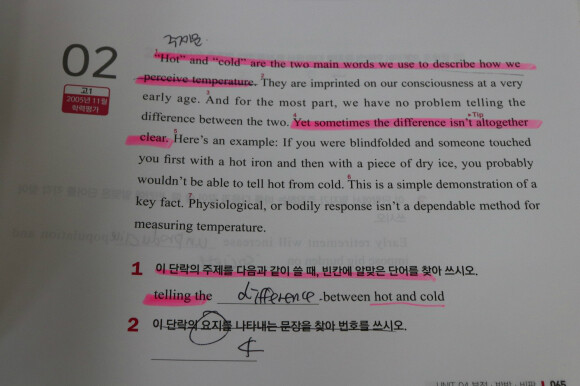 주제문
02
고1
2005년 11월
학력평가
1 "Hot" and "cold" are the two main words we use to describe how we
perceive temperature. 2 They are imprinted on our consciousness at a very
early age. 3 And for the most part, we have no problem telling the
difference between the two. 4 Yet sometimes the difference isn't altogether
*Tip
clear. 5 Here's an example: If you were blindfolded and someone touched
you first with a hot iron and then with a piece of dry ice, you probably
wouldn't be able to tell hot from cold. 6 This is a simple demonstration of a
key fact. 7 Physiological, or bodily response isn't a dependable method for
measuring temperature.
1 이 단락의 주제를 다음과 같이 쓸 때, 빈칸에 알맞은 단어를 찾아 쓰시오.
telling the difference between hot and cold
2 이 단락의 요지를 나타내는 문장을 찾아 번호를 쓰시오.
4
065